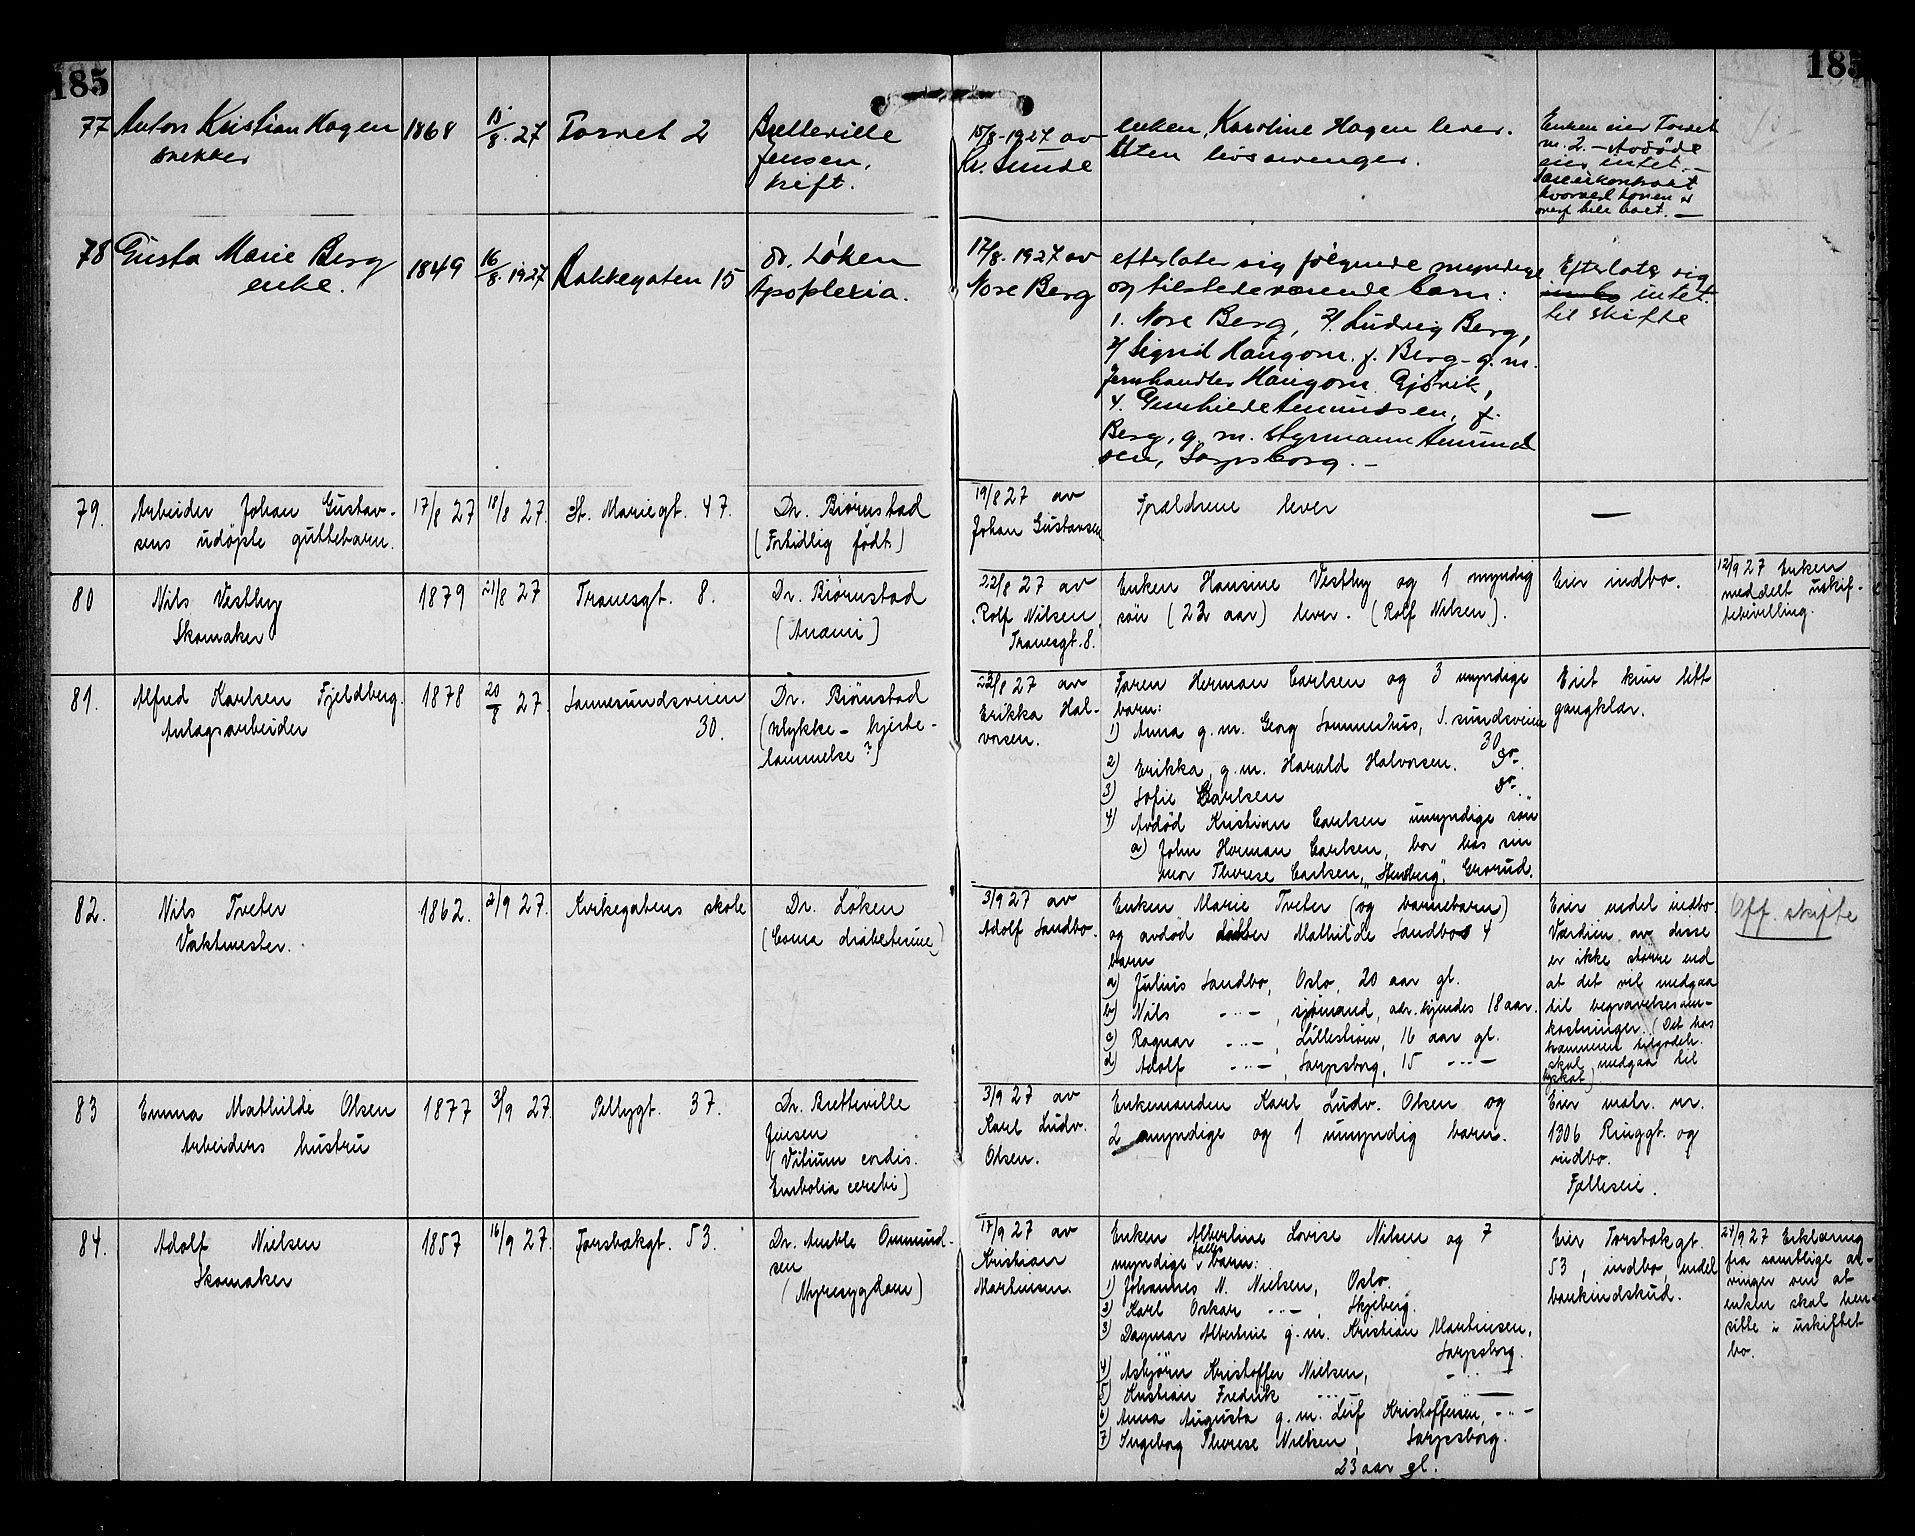 185
185
77
Anton Kristian Hagen
snekker
1868
15/8. 27
Torvet 2
Bretteville
Jensen.
kreft.
15/8-1927 av
Kr. Lunde
enken, Karoline Hagen lever.
Uten livsarvinger.
Enken eier Torvet
nr. 2. – Avdøde
eier intet. –
hvorved konen er
overf. hele boet. –
78
Gusta Marie Berg
enke.
1849
16/8. 1927
Bakkegaten 15
Dr. Løken
Apoplexia.
17/8. 1927 av
Nore Berg
efterlater sig følgende myndige
og tilstedeværende barn:
1. Nore Berg, 2/ Ludvig Berg,
3/ Sigrid Haugom. f. Berg – g. m.
Jernhandler Haugom Gjøvik,
4. Gunhilde Amundsen, f.
Berg, g. m. Styrmann Amund
sen, Sarpsborg. –
Efterlater sig
intet
til skifte
79.
Arbeider Johan Gustav-
sens udøpte guttebarn.
17/8 27
18/8 27.
St. Mariegt. 47.
Dr. Bjørnstad
(Fortidlig født)
19/8 27 av
Johan Gustavsen
Forældrene lever
—
80
Nils Vestby
Skomaker
1879
21/8 27
Tranesgt. 8.
Dr. Bjørnstad
(Anæmi)
22/8 27 av
Rolf Nilsen,
Tranesgt. 8.
Enken Hansine Vestby og 1 myndig
søn (23 aar) lever. (Rolf Nilsen).
Eier indbo.
12/9 27 Enken
meddelt uskif-
tebevilling.
81.
Alfred Karlsen Fjeldberg.
Anlagsarbeider
1878
20/8 27.
Sannesundsveien
30.
Dr. Bjørnstad
(ulykke – hjerte-
lammelse?)
23/8 27 av
Erikka Hal-
vorsen.
Faren Herman Carlsen og 3 myndige
barn:
1) Anna g. m. Georg Sommerhus, S. sundsveien
30
2) Erikka, g. m. Harald Halvorsen. do-
3) Sofie Carlsen do-
4) Avdød Kristian Carlsen umyndige søn
a) John Herman Carlsen, bor hos sin
mor Therese Carlsen, Grorud.
Eiet kun litt
gangklær.
82.
Nils Tveter
Vaktmester.
1862.
2/9 27.
Kirkegatens skole
Dr. Løken
(Coma diabeticum)
3/9 27 av
Adolf Sandbo.
Enken Marie Tveter (og barnebarn)
og avdød datter Mathilde Sandbos 4
barn
a) Julius Sandbo, Oslo, 20 aar gl.
b) Nils -"-, sjømand, adr. kjendes 18 aar.
c) Ragnar -"-, Lillestrøm, 16 aar gl.
d) Adolf -"-, Sarpsborg, 15 -"-
Eier endel indbo.
Værdien av disse
er ikke større end
at det vil medgaa
til begravelsesom-
kostninger. (Det hos
kæmneren tilgodeh.
skal medgaa til
skat)
Off. skifte
83
Emma Mathilde Olsen
Arbeiders hustru
1877
3/9 27
Pellygt. 37.
Dr. Bretteville
Jensen
(Vitium cordis.
Embolia cerebi)
3/9 27 av
Karl Ludv.
Olsen.
Enkemanden Karl Ludv. Olsen og
2 myndige og 1 umyndig barn.
Eier matr. nr.
1306 Ringgt. og
indbo.
Felleseie.
84.
Adolf Nielsen
Skomaker
1857
16/9 27.
Torsbækgt. 53.
Dr. Amble Ommund-
sen
(Nyresygdom)
17/9 27 av
Kristian
Martinsen.
Enken Albertine Lovise Nilsen og 7
myndige felles barn:
1) Johannes N. Nielsen, Oslo.
2) Karl Oskar -"-, Skjeberg.
3) Dagmar Albertine g. m. Kristian Martinsen,
Sarpsborg.
4) Asbjørn Kristoffer Nielsen, -"-
5) Kristian Fredrik -"- —
6) Anna Augusta g. m. Leif Kristoffersen, -"-
7) Ingeborg Therese Nielsen, Sarpsborg.
23 aar gl.
Eier Torsbækgt.
53, indbo, endel
bankindskud.
24/9 27 Erklæring
fra samtlige ar-
vinger om at
enken skal hen-
sitte i uskiftet
bo.